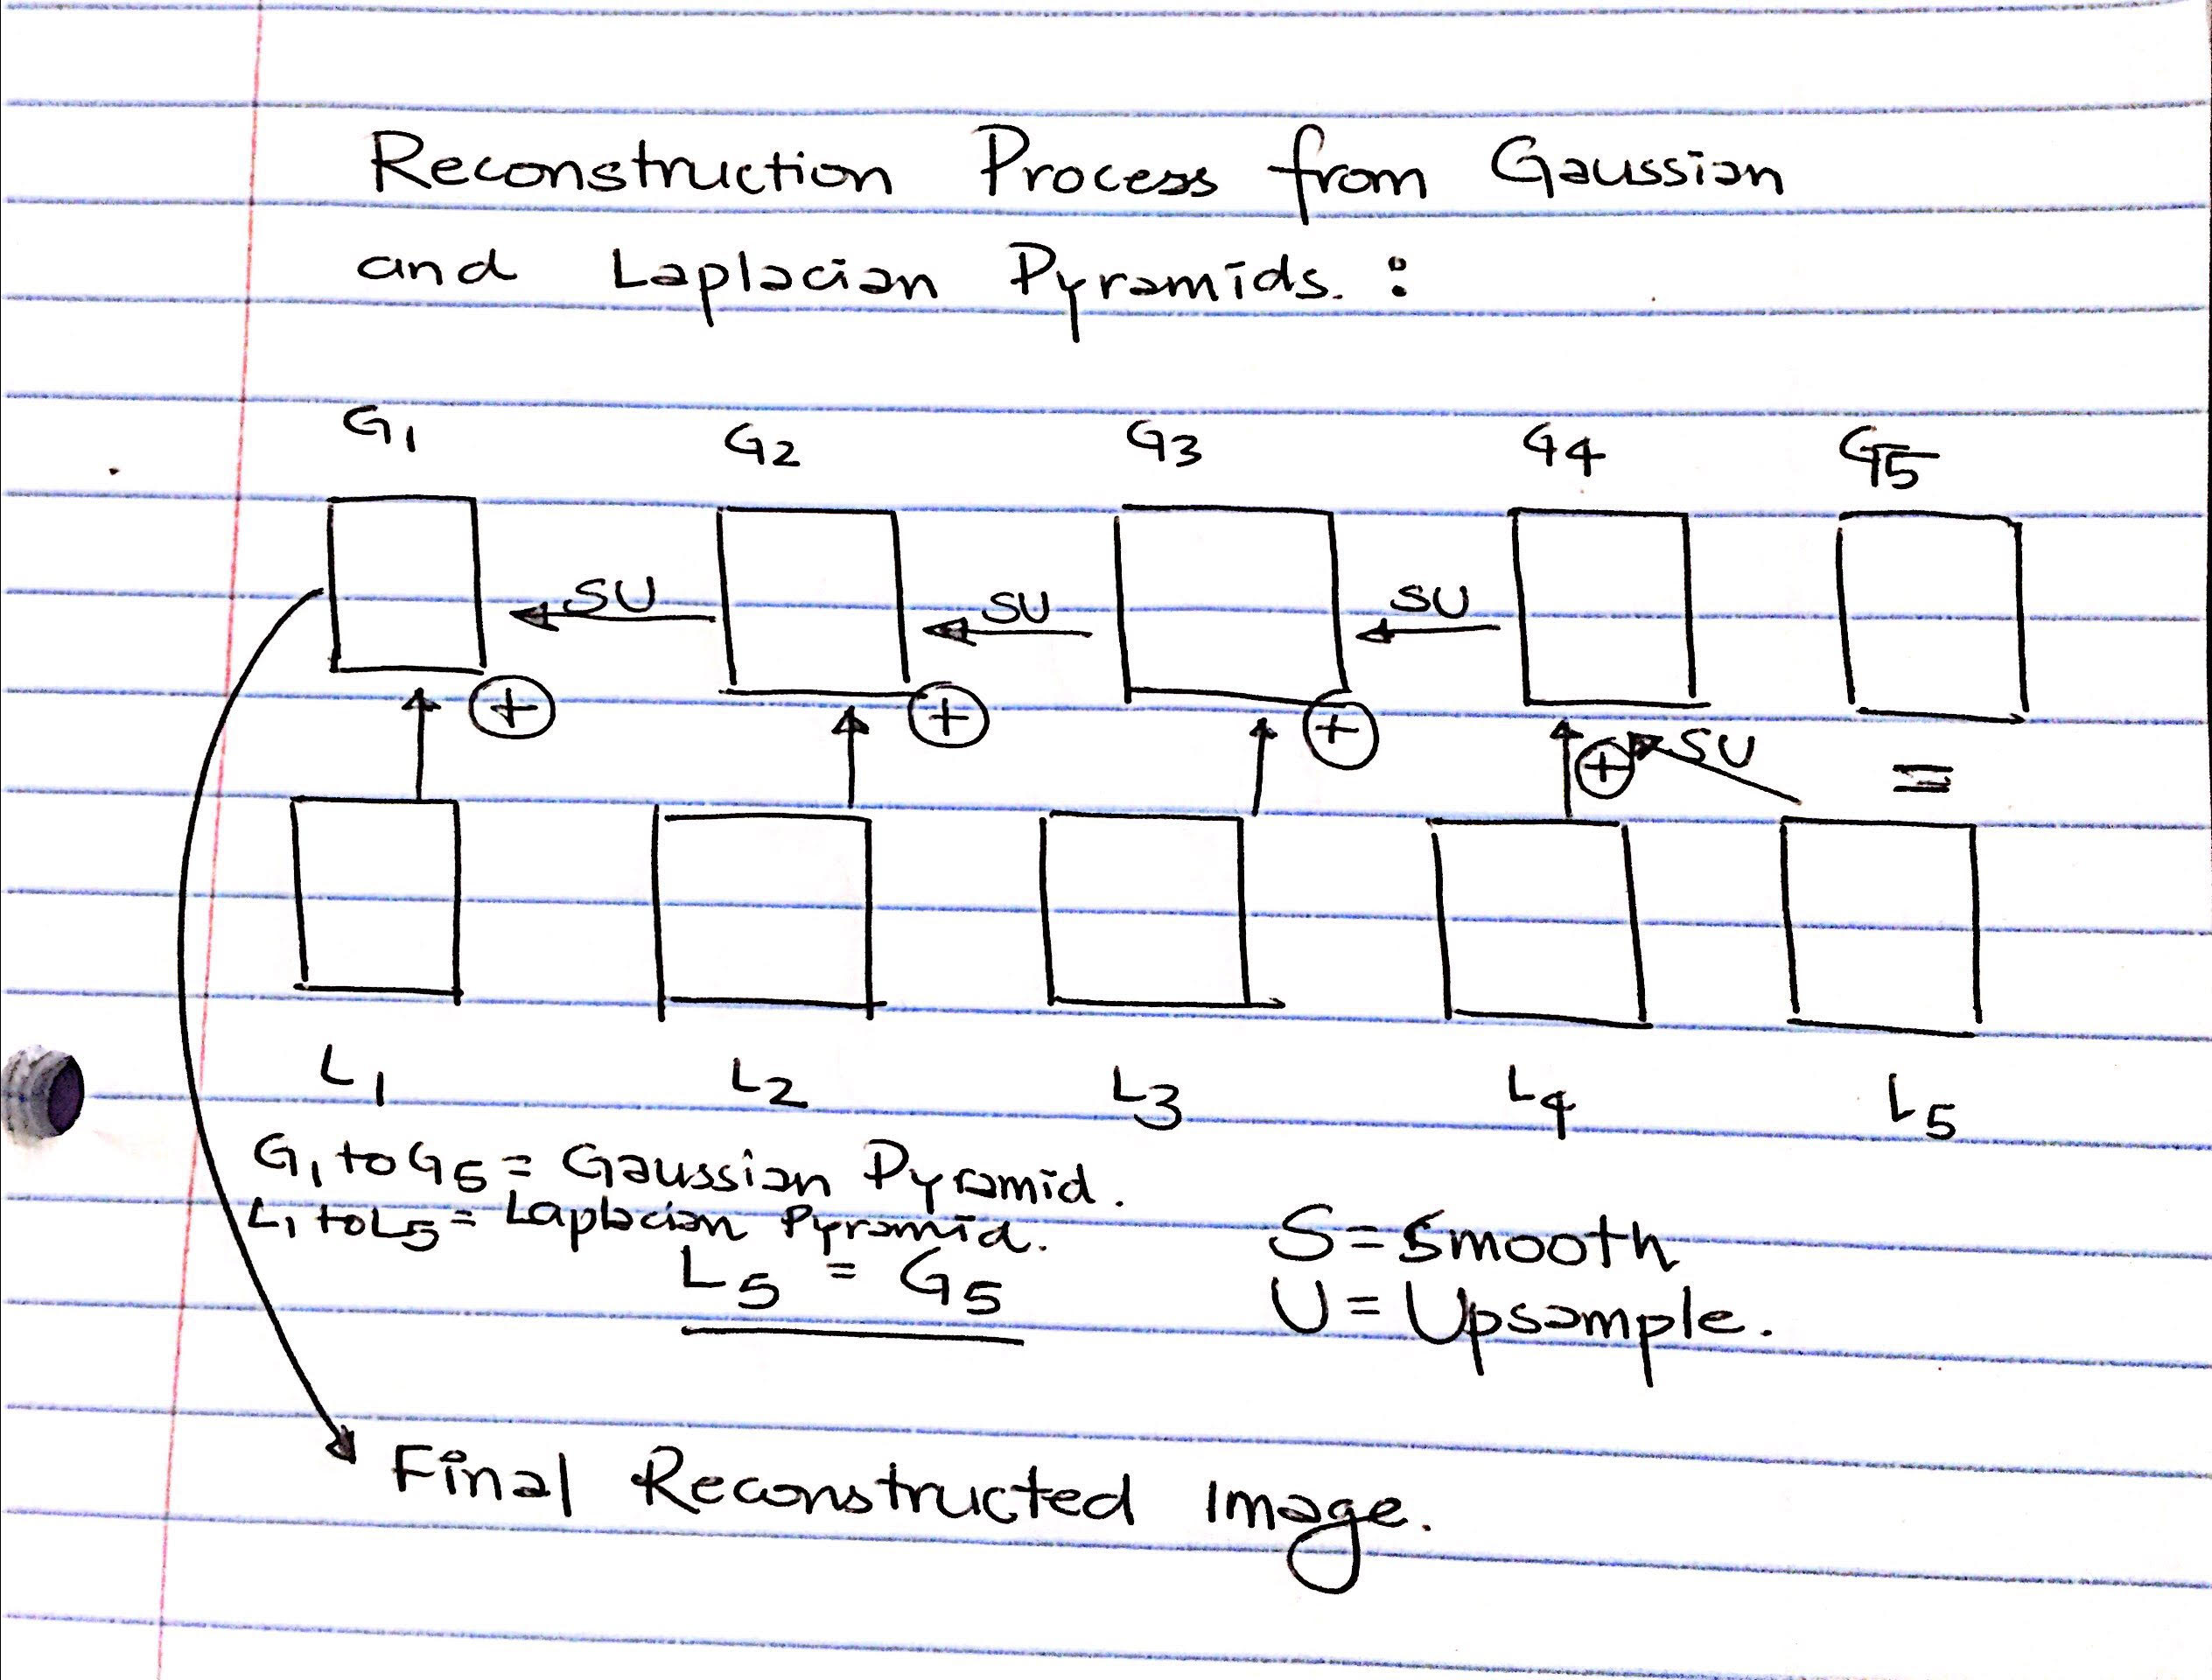 Reconstruction Process from Gaussian
and Laplacian Pyramids. :
G1 G2 G3 G4 G5
SU SU SU
+ + + + SU =
L1 L2 L3 L4 L5
G1 to G5 = Gaussian Pyramid.
L1 to L5 = Laplacian Pyramid.
L5 = G5
S = Smooth
U = Upsample.
Final Reconstructed Image.